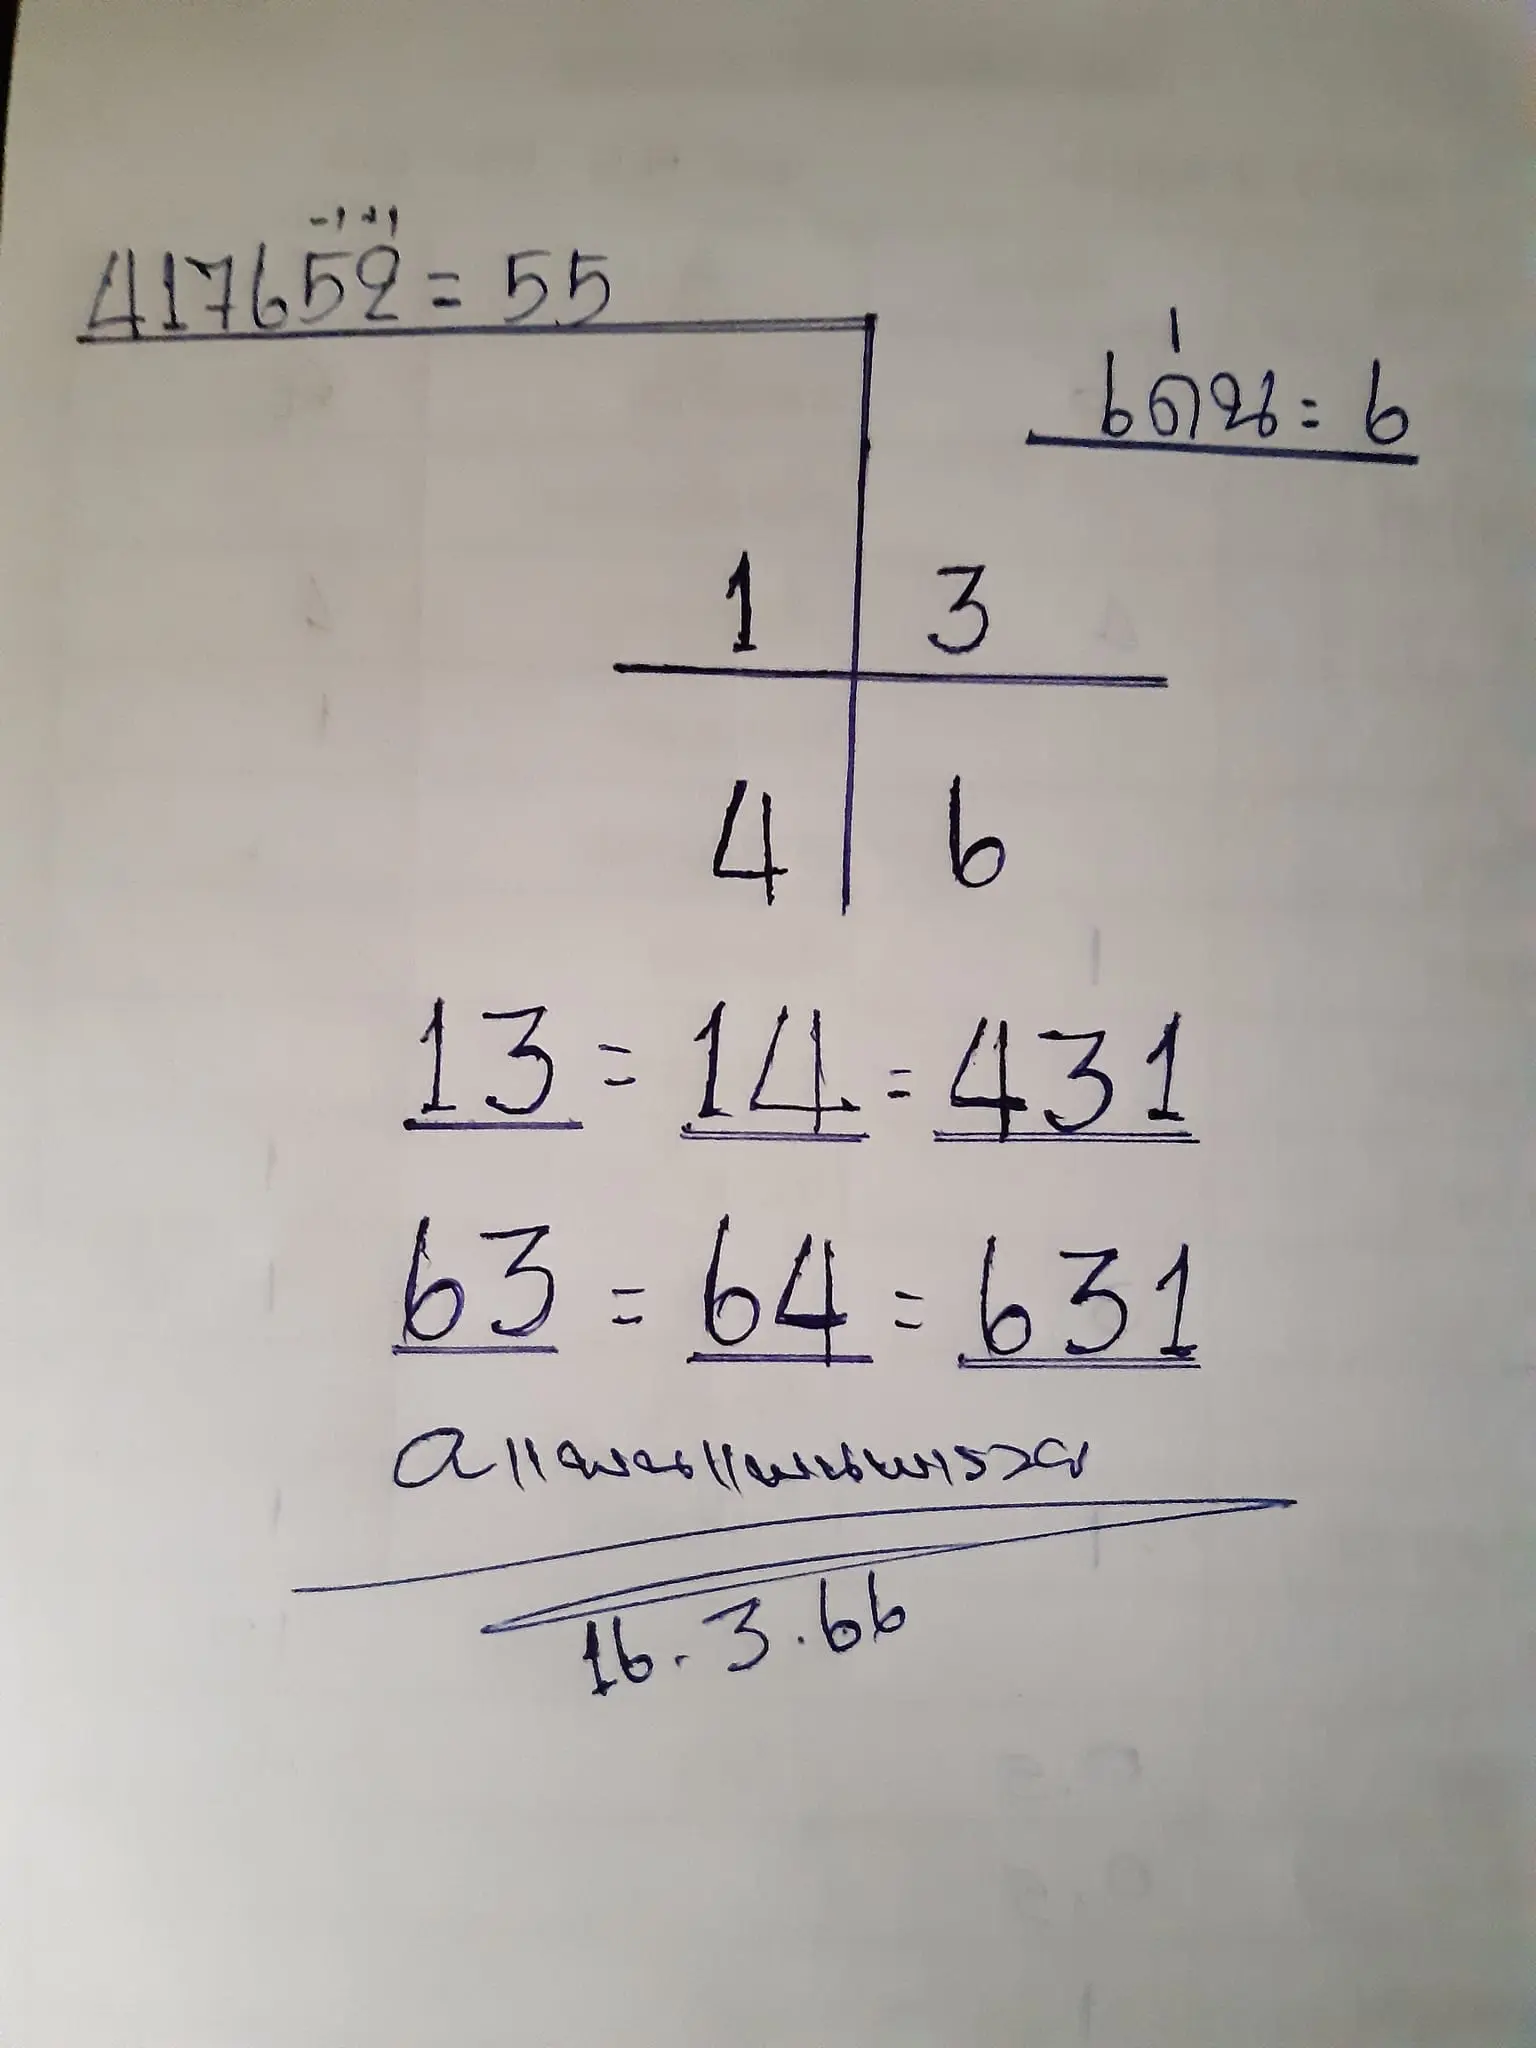 -1 +1
417652 = 55
เด่น = 6
1 3
4 6
13 = 14 = 431
63 = 64 = 631
16.3.66